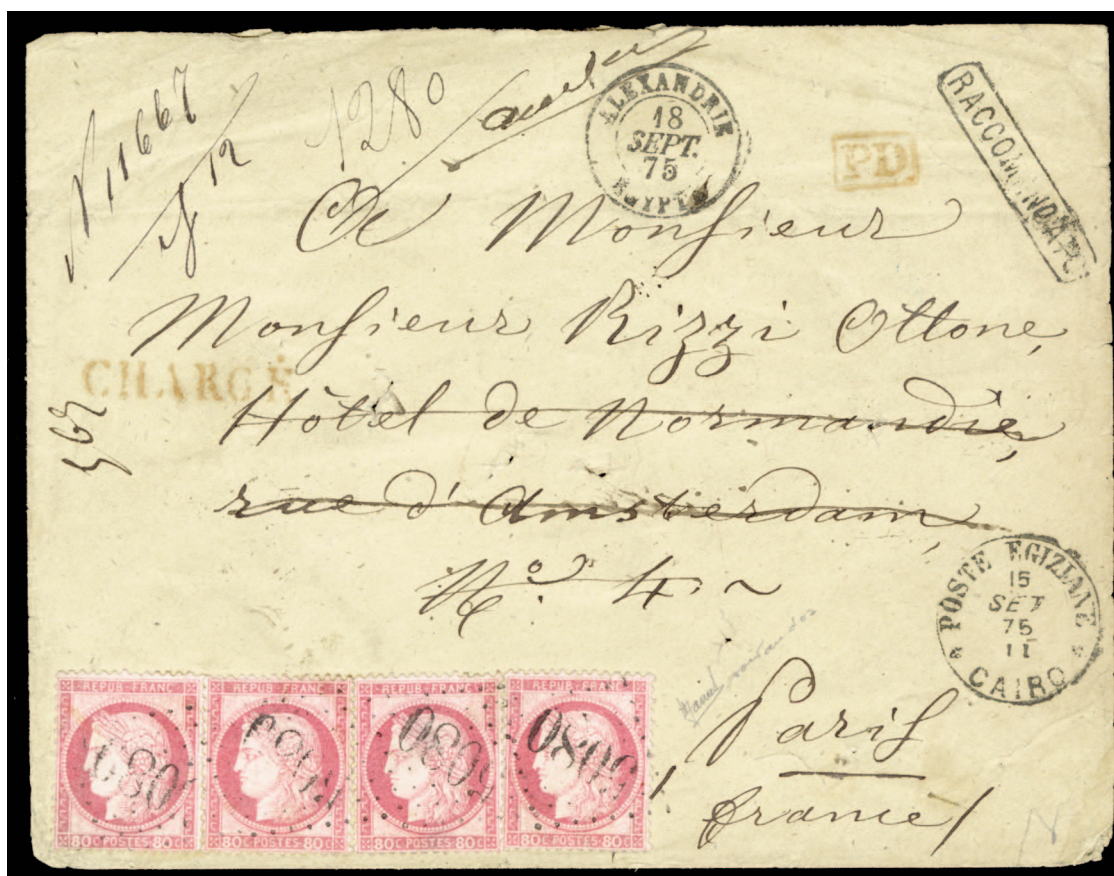 N 11667
12
1280
ALEXANDRIE
18
SEPT.
75
EGYPTE
PD
RACCOMANDATO
A Monsieur
Monsieur Rizzi Ottone,
CHARGÉ
Hôtel de Normandie,
rue d'Amsterdam,
No. 4. ~
POSTE EGIZIANE
15
SET
75
11
CAIRO
Paris
France
REPUB·FRANC·
80C·POSTES·80C·
REPUB·FRANC·
80C·POSTES·80C·
REPUB·FRANC·
80C·POSTES·80C·
REPUB·FRANC·
80C·POSTES·80C·
5080
5080
5080
5080